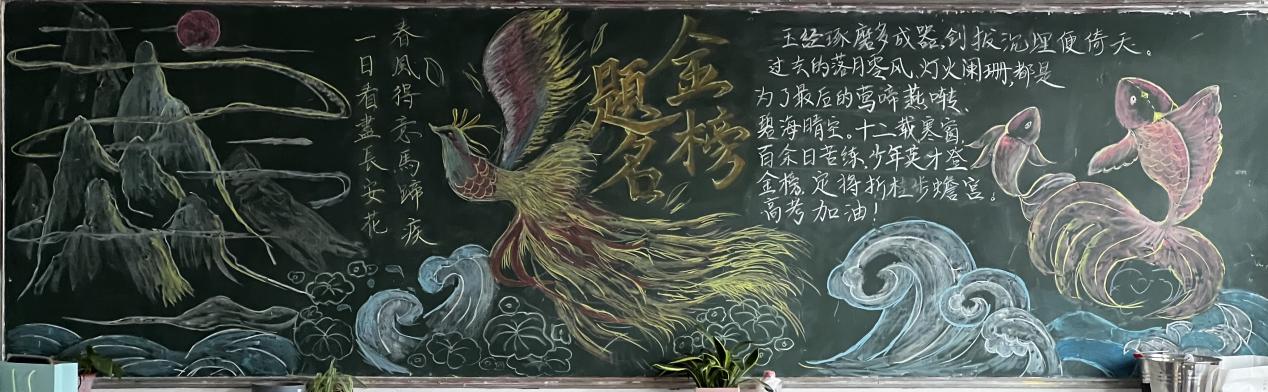 春風得意馬蹄疾
一日看盡長安花
金榜
題名
玉经琢磨多成器,剑拔沉埋便倚天。
过去的落月寒风,灯火阑珊,都是
为了最后的莺啼燕啭、
碧海晴空。十二载寒窗,
百余日苦练,少年英才登
金榜,定将折桂步蟾宫。
高考加油!